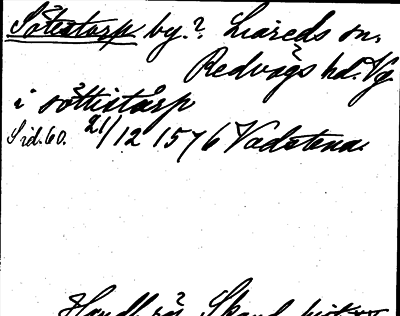 Sötestorp by.? Liareds sn.
Redvägs hd. Vg.
i söttistårp
Sid. 60. 21/12 1576 Vadstena.
Handl. rör. Skand. hist.